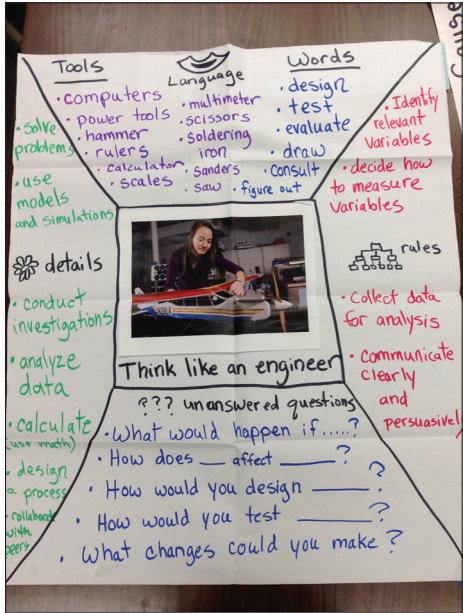 Cause
Tools
Language
Words
• computers
• power tools
• hammer
• rulers
• calculator
• scales
• multimeter
• scissors
• soldering
iron
• sanders
• saw
• design
• test
• evaluate
• draw
• consult
• figure out
• solve
problems
• use
models
and simulations
details
• conduct
investigations
• analyze
data
• calculate
(use math)
• design
a process
• collaborate
with
peers
Think like an engineer
• Identify
relevant
variables
• decide how
to measure
variables
rules
• Collect data
for analysis
• Communicate
clearly
and
persuasively
??? unanswered questions
• What would happen if.....?
• How does __ affect ____?
• How would you design ____?
• How would you test ____?
• What changes could you make?